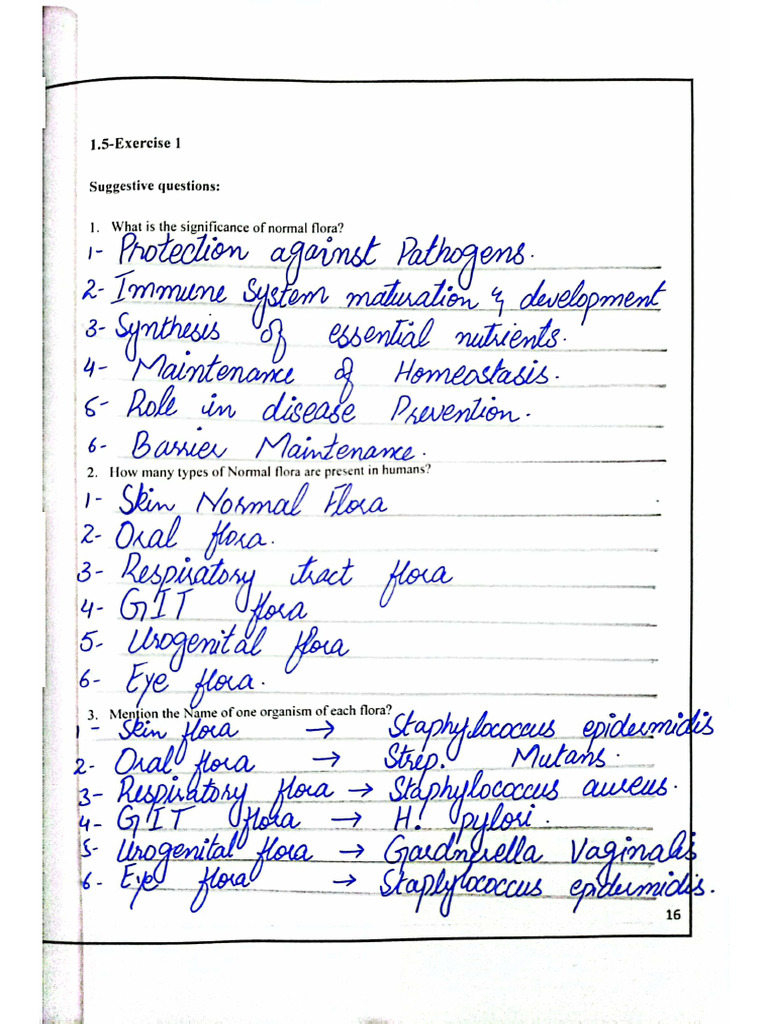 1.5-Exercise 1
Suggestive questions:
1. What is the significance of normal flora?
1- Protection against Pathogens.
2- Immune System maturation & development
3- Synthesis of essential nutrients.
4- Maintenance of Homeostasis.
5- Role in disease Prevention.
6- Barrier Maintenance.
2. How many types of Normal flora are present in humans?
1- Skin Normal Flora
2- Oral flora.
3- Respiratory tract flora
4- GIT flora
5- Urogenital flora
6- Eye flora.
3. Mention the Name of one organism of each flora?
1- Skin flora → Staphylococcus epidermidis
2- Oral flora → Strep. Mutans.
3- Respiratory flora → Staphylococcus aureus.
4- GIT flora → H. pylori.
5- Urogenital flora → Gardnerella Vaginalis
6- Eye flora → Staplylococcus epidermidis.
16